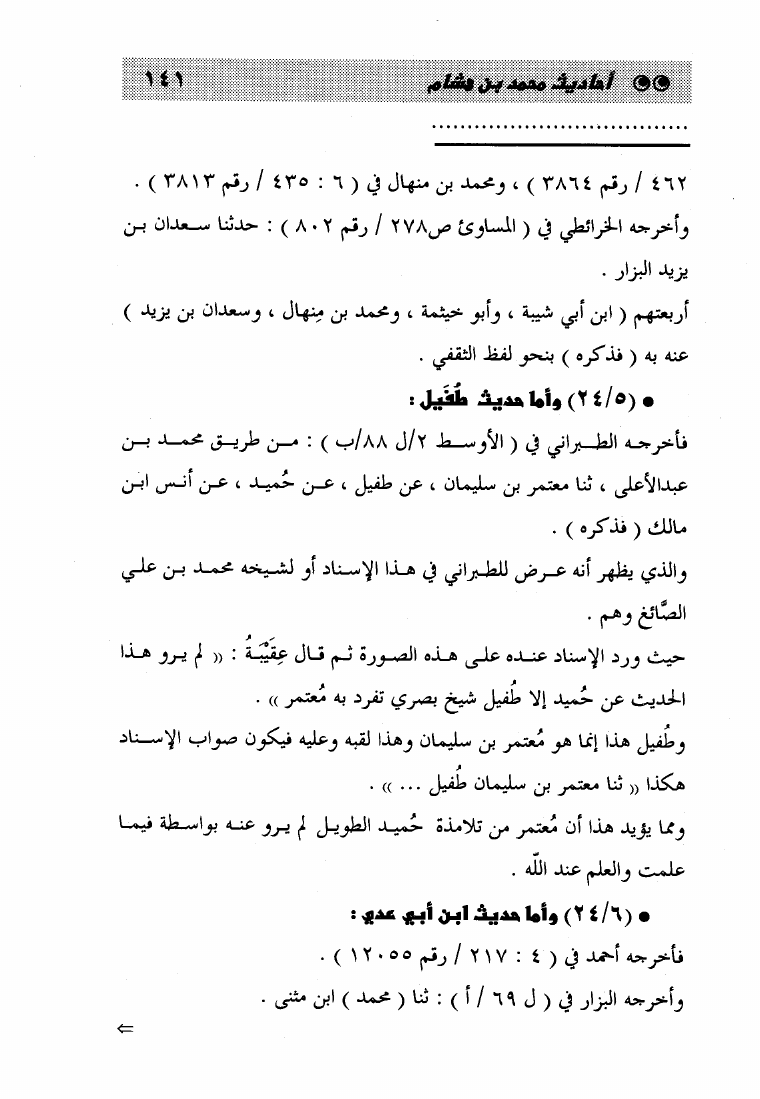 أحاديث محمد بن هشام ١٤١
٤٦٢ / رقم ٣٨٦٤ ) ، ومحمد بن منهال في ( ٦ : ٤٣٥ / رقم ٣٨١٣ ) .
وأخرجه الخرائطي في ( المساوئ ص٢٧٨ / رقم ٨٠٢ ) : حدثنا سعدان بن
يزيد البزار .
أربعتهم ( ابن أبي شيبة ، وأبو خيثمة ، ومحمد بن مِنهال ، وسعدان بن يزيد )
عنه به ( فذكره ) بنحو لفظ الثقفي .
● (٢٤/٥) وأما حديث طُفَيل :
فأخرجه الطبراني في ( الأوسط ٢/ل ٨٨/ب ) : من طريق محمد بن
عبدالأعلى ، ثنا معتمر بن سليمان ، عن طفيل ، عن حُميد ، عن أنس ابن
مالك ( فذكره ) .
والذي يظهر أنه عرض للطبراني في هذا الإسناد أو لشيخه محمد بن علي
الصَّائغ وهم .
حيث ورد الإسناد عنده على هذه الصورة ثم قال عِقَيْبَةُ : « لم يرو هذا
الحديث عن حُميد إلا طُفيل شيخ بصري تفرد به مُعتمر » .
وطُفيل هذا إنما هو مُعتمر بن سليمان وهذا لقبه وعليه فيكون صواب الإسناد
هكذا « ثنا معتمر بن سليمان طُفيل ... » .
ومما يؤيد هذا أن مُعتمر من تلامذة حُميد الطويل لم يرو عنه بواسطة فيما
علمت والعلم عند اللّه .
● (٢٤/٦) وأما حديث ابن أبي عدي :
فأخرجه أحمد في ( ٤ : ٢١٧ / رقم ١٢٠٥٥ ) .
وأخرجه البزار في ( ل ٦٩ / أ ) : ثنا ( محمد ) ابن مثنى .
⇐